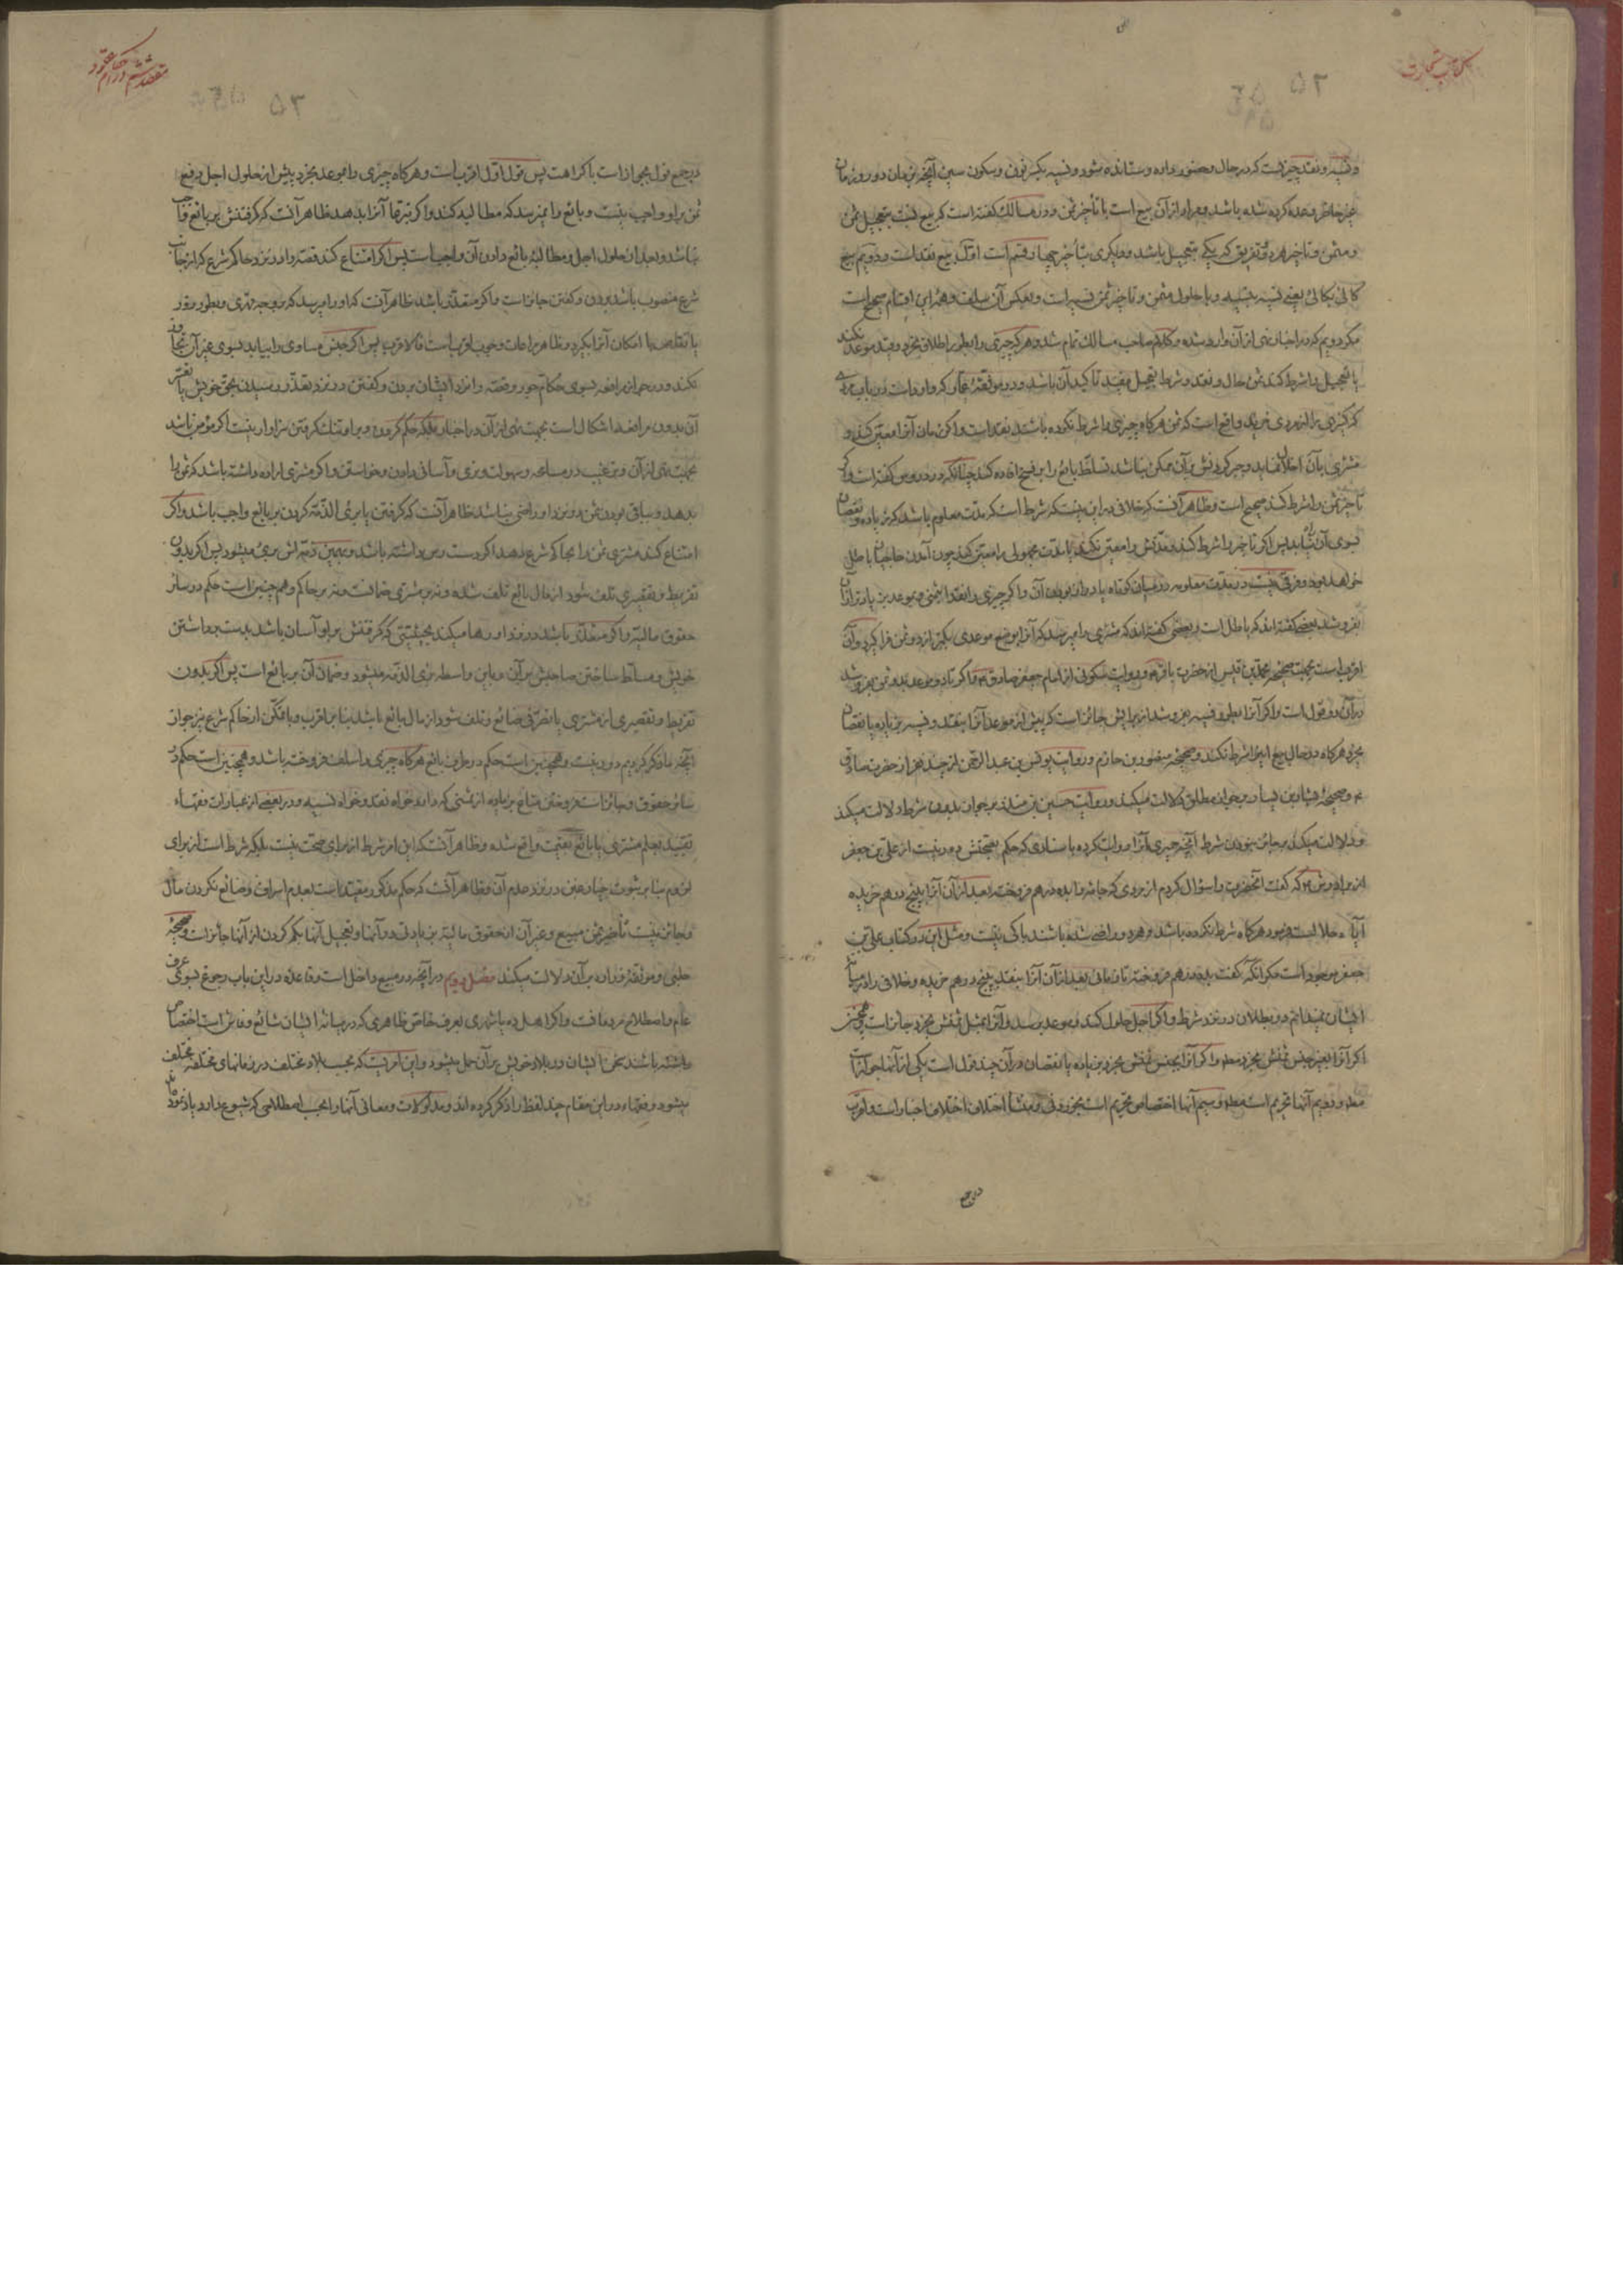 کتاب تجارت
۵۲
و نسیه و نقد چیزیست که در حال و حضور داده و ستانده میشود و نسیه بکسر نون و سکون سین آنچه بزمان دور و زمان
غیر حاضر وعده کرده شده باشد و مراد از آن بیع است با تأخیر ثمن و در مسالک گفته است که بیع نسبت بتعجیل ثمن
و مثمن و تأخیر هر دو و تفریق که یکی بتعجیل باشد و دیگری بتأخیر چهار قسم است اول بیع نقد است و دویم بیع
کالی بکالی یعنی نسیه بنسیه و با حلول مثمن و تأخیر ثمن نسیه است و بعکس آن سلف و همۀ این اقسام صحیح است
مگر دویم که در اخبار نهی از آن وارد شده و کلام صاحب مسالک تمام شد و هر که چیزی را بطور اطلاق بخرد و بقید موعد نکند
یا تعجیل را شرط کند ثمن حال و نقد و شرط تعجیل مفید تأکید آن باشد و در موثقۀ عمار که وارد است در باب مردی
که کنیزی برا از مردی خرید واقع است که ثمن هرگاه چیزی را شرط نکرده باشند نقد است و اگر زمان آنرا معین کند و
مشتری بآن اخلال نماید و جبر کردنش بر آن ممکن نباشد تسلط بایع را بر فسخ افاده کند چنانکه در دروس گفته است و اگر
تأخیر ثمن را شرط کند صحیح است و ظاهر آنست که خلافی در این نیست که شرط است که مدت معلوم باشد که زیاده و نقصان
بسوی آن نیاید پس اگر تأخیر را شرط کند و مدتش را معین نکند یا مدت مجهولی را معین کند چون آمدن حاجیان باطل
خواهد بود و فرقی نیست در مدت معلومه در میان کوتاه یا دراز بودن آن و اگر چیزی را نقدا بثمنی و موعد بزیادتر از آن
بفروشد بعضی گفته‌اند که باطل است و بعضی گفته‌اند که مشتری را میرسد که آنرا بوضع موعدی بکمتر از دو ثمن فرا گیرد و آن
اقرب است بجهت صحیحۀ محمد بن قیس از حضرت باقر و روایت سکونی از امام جعفر صادق و اگر تا دو موعد بدو ثمن بفروشد
در آن دو قول است و اگر آنرا بطور نسیه بفروشد از برایش جائز است که پیش از موعد آنرا بنقد و نسیه بزیاده یا نقصان
بخرد هرگاه در حال بیع این را شرط نکند و صحیحۀ منصور بن حازم و روایت یونس بن عبد الرحمن از چند نفر از حضرت صادق
و صحیحۀ بشار بن یسار بر جواز مطلق دلالت میکند و روایت حسین بن منذر بر جواز بدون شرط دلالت میکند
و دلالت میکند بر جائز نبودن شرط آنچه حمیری آنرا روایت کرده باسنادی که حکم بصحتش دور نیست از علی بن جعفر
از برادرش که گفت آنحضرت را سؤال کردم از مردی که جامه را بده درهم فروخته بعد از آن آنرا بپنج درهم خریده
آیا حلال است فرمود هرگاه شرط نکرده باشد و هر دو راضی شده باشند باکی نیست و مثل این در کتاب علی بن
جعفر موجود است مگر آنکه گفت بده درهم فروخته تا زمانی بعد از آن آنرا بنقد بپنج درهم خریده و خلافی را در میان
ایشان نمیدانم در بطلان در نزد شرط و اگر اجل حلول کند و موعد برسد و آنرا بمثل ثمنش بخرد جائز است و همچنین
اگر آنرا بغیر جنس ثمنش بخرد مطلقا و اگر آنرا بجنس ثمنش بخرد بزیاده یا نقصان در آن چند قول است یکی از آنها جواز است
مطلقا و دویم آنها تحریم است مطلقا و سیم آنها اختصاص تحریم است بخوردنی و منشأ اختلاف اختلاف اخبار است و اقرب
در جمع
مقصد ششم در احکام عقود
۵۳
در جمع قول بجواز است با کراهت پس قول اول اقرب است و هرگاه چیزی را بموعد بخرد پیش از حلول اجل دفع
ثمن بر او واجب نیست و بایع را نمیرسد که مطالبه کند و اگر تبرعا آنرا بدهد ظاهر آنست که گرفتنش بر بایع واجب
نباشد و بعد از حلول اجل و مطالبۀ بایع دادن آن واجب است پس اگر امتناع کند قصه را در نزد حاکم شرع که از جانب
شرع منصوب باشد بردن و گفتن جائز است و اگر متعذر باشد ظاهر آنست که او را میرسد که بوجه قهری و بطور زور
یا تقاص با امکان آنرا بگیرد و ظاهر مراعات وجه اقرب است فالاقرب پس اگر جنس مساوی را بیابد بسوی غیر آن تجاوز
نکند و در جواز مرافعه بسوی حکام جور و قصه را نزد ایشان بردن و گفتن در نزد تعذر رسیدن بحق خویش یا تعسر
آن بدون مرافعه اشکال است بجهت نهی از آن در اخبار بلکه حکم کردن و بر او تنگ گرفتن سزاوار نیست اگر مؤمن باشد
بجهت نهی از آن و ترغیب در مسامحه و سهولت و نرمی و آسانی دادن و خواستن و اگر مشتری اراده داشته باشد که ثمن را
بدهد و بباقی بودن ثمن در نزد او راضی نباشد ظاهر آنست که گرفتن یا بری الذمه کردن بر بایع واجب باشد و اگر
امتناع کند مشتری ثمن را بحاکم شرع بدهد اگر دست رس داشته باشد و بهمین ذمه اش بری میشود پس اگر بدون
تفریط و تقصیری تلف شود از مال بایع تلف شده و نه بر مشتری ضمانست و نه بر حاکم و هم چنین است حکم در سائر
حقوق مالیه و اگر متعذر باشد در نزد او رها میکند بحیثیتی که گرفتنش بر او آسان باشد بدست برداشتن
خویش و مسلط ساختن صاحبش بر آن و باین واسطه بری الذمه میشود و ضمان آن بر بایع است پس اگر بدون
تفریط و تقصیری از مشتری یا تصرفی ضائع و تلف شود از مال بایع باشد بنا بر اقرب و با تمکن از حاکم شرع نیز جواز
آنچه ما ذکر کردیم دور نیست و همچنین است حکم در طرف بایع هرگاه چیزی را سلف فروخته باشد و همچنین است حکم در
سائر حقوق و جائز است فروختن متاع بزیاده از ثمنی که دارد خواه نقد و خواه نسیه و در بعضی از عبارات فقهاء
تقیید بعلم مشتری یا بایع بقیمت واقع شده و ظاهر آنست که این امر شرط از برای صحت نیست بلکه شرط است از برای
لزوم بنا بر ثبوت خیار غبن در نزد عدم آن و ظاهر آنست که حکم مذکور مقید است بعدم اسراف و ضائع نکردن مال
و جائز نیست تأخیر ثمن مبیع و غیر آن از حقوق مالیه بزیادتی در آنها و تعجیل آنها بکم کردن از آنها جائز است و صحیحۀ
حلبی و موثقۀ زراره بر آن دلالت میکند فصل دویم در آنچه در مبیع داخل است و قاعده در این باب رجوع بسوی عرف
عام و اصطلاح مردمانست و اگر اهل ده یا شهری بعرف خاص ظاهری که در میانۀ ایشان شائع و فاش است اختصاص
داشته باشند سخن ایشان در بلاد خویش بر آن حمل میشود و این امریست که بحسب بلاد مختلف در زمانهای مختلفه مختلف
میشود و فقهاء در این مقام چند لفظ را ذکر کرده‌اند و مدلولات و معانی آنها را بحسب اصطلاحی که شیوع دارد یاد نموده‌اند